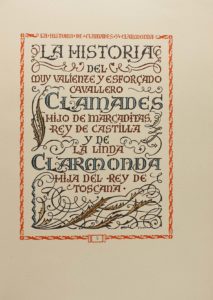 LA HISTORIA DE CLAMADES Y CLARMONDA
LA HISTORIA
DEL
MUY VALIENTE Y ESFORÇADO
CAVALLERO
CLAMADES
HIJO DE MARCADITAS,
REY DE CASTILLA
Y DE
LA LINDA
CLARMONDA
HIJA DEL REY DE
TOSCANA